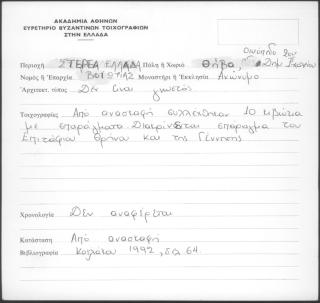 ΑΚΑΔΗΜΙΑ ΑΘΗΝΩΝ
ΕΥΡΕΤΗΡΙΟ ΒΥΖΑΝΤΙΝΩΝ ΤΟΙΧΟΓΡΑΦΙΩΝ
ΣΤΗΝ ΕΛΛΑΔΑ
Οικόπεδο
Περιοχή ΣΤΕΡΕΑ ΕΛΛΑΔΑ Πόλη ή Χωριό Θήβα,
Νομός ή Επαρχία ΒΟΙΩΤΙΑΣ Μοναστήρι ή Εκκλησία Ανώνυμο
Αρχιτεκτ. τύπος Δεν είναι γνωστός
Τοιχογραφίες Από ανασκαφή συλλέχθηκαν 10 κιβώτια
με σπαράγματα Διακρίνεται σπάραγμα του
Επιτάφιου Θρήνου και της Γέννησης
Χρονολογία Δεν αναφέρεται
Κατάσταση Από ανασκαφή
Βιβλιογραφία 1992, σελ 64.